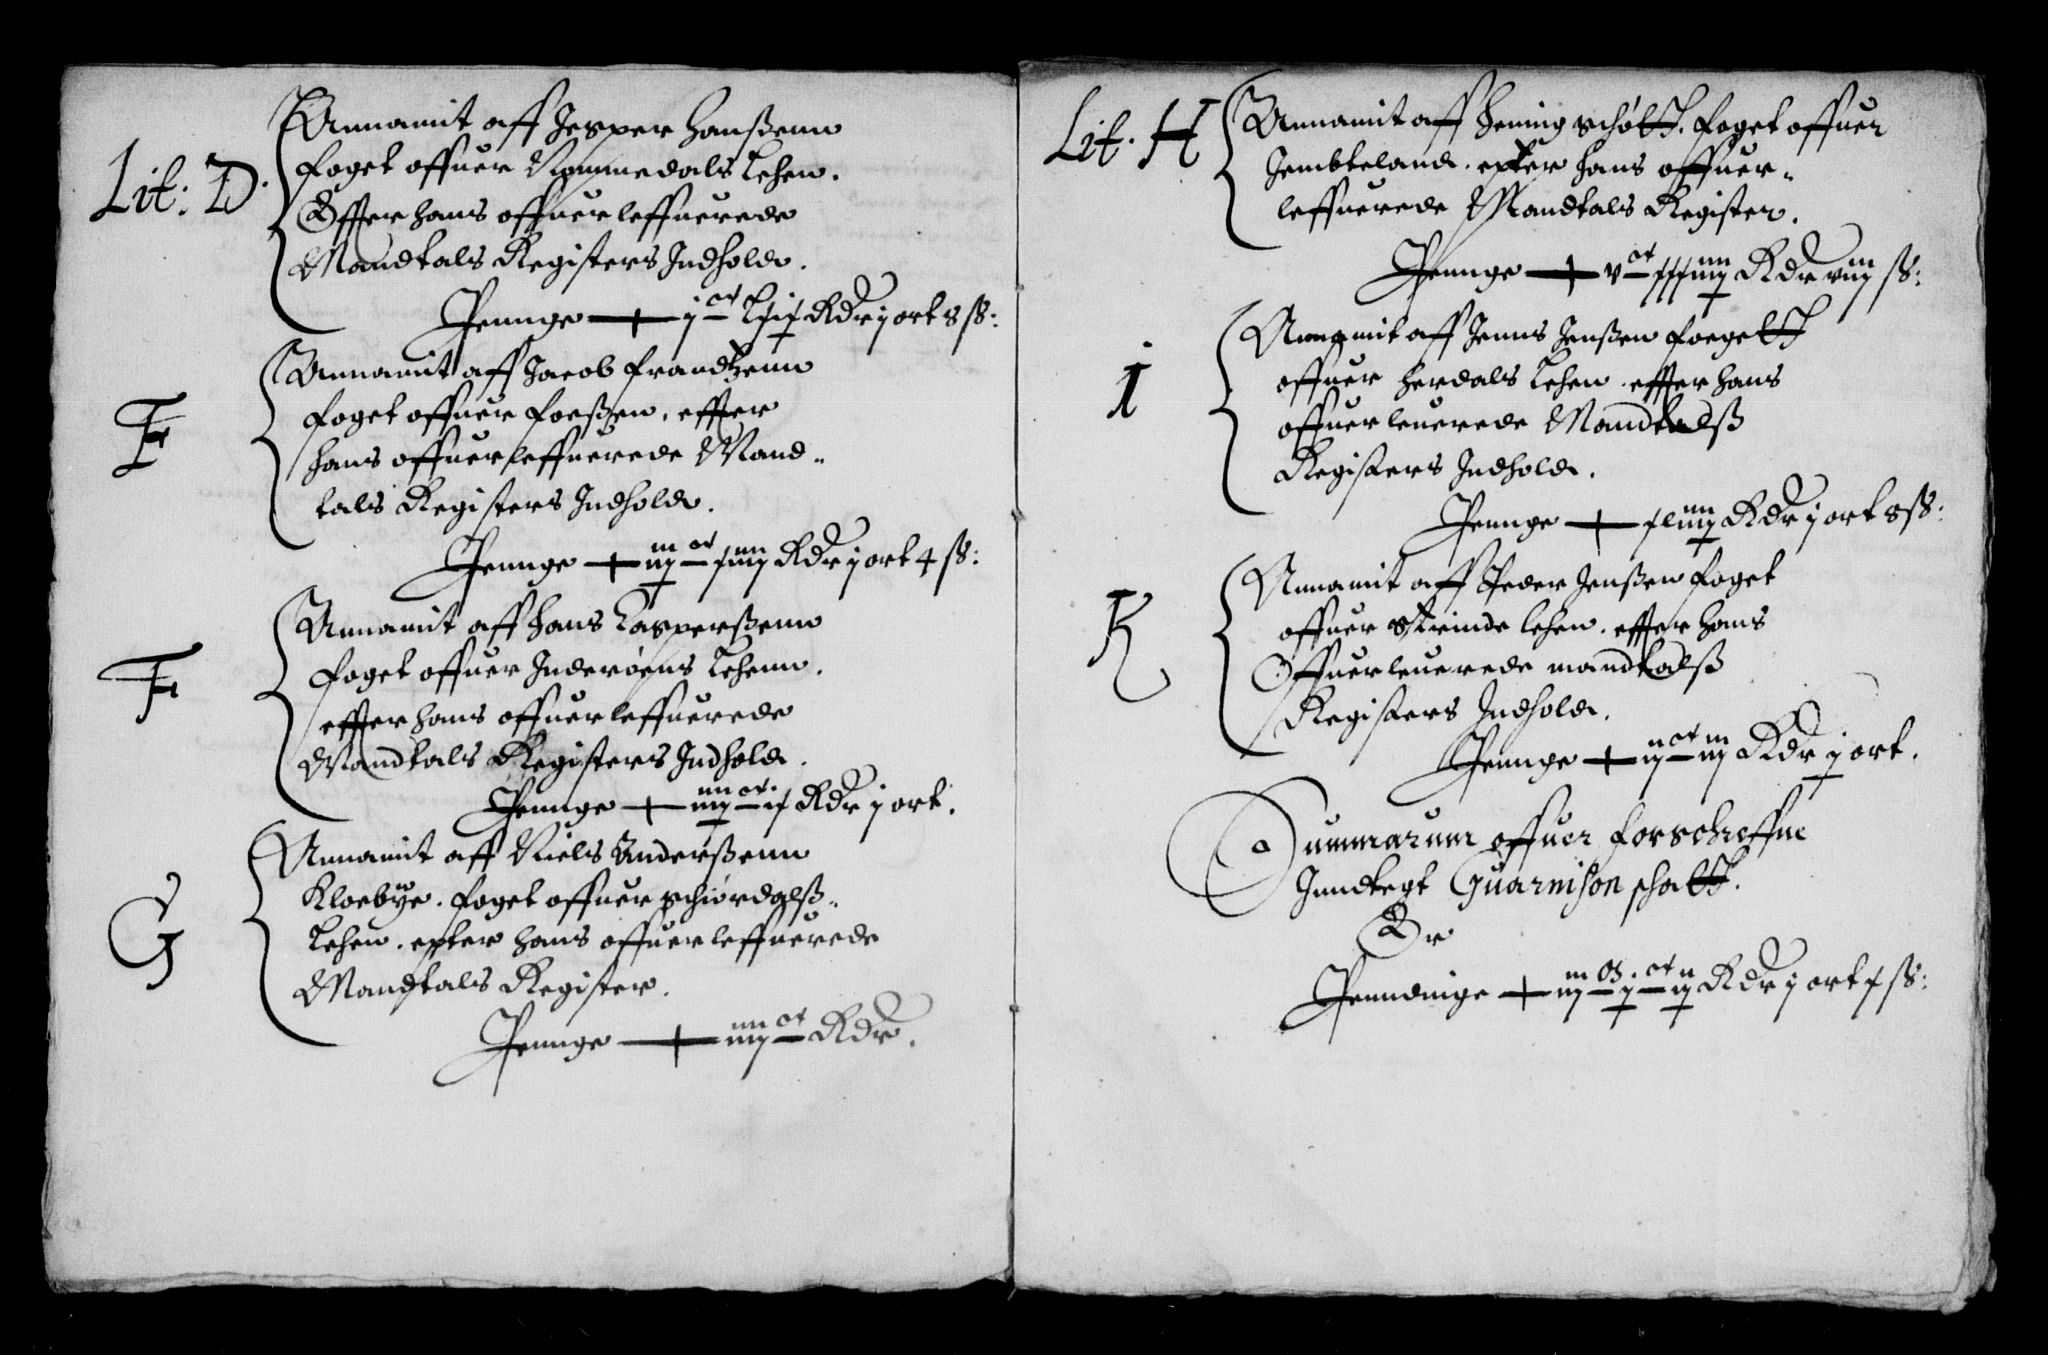 Lit: D.
Annamit aff Jesper Hanßenn
Foget offuer Nommedals Lehen.
Effter hans offuerleffuerede
Mandtals Registers Indhold.
Pennge — j ort 8 ß:
E
Annamit aff Jacob Frandtzenn
Foget offuer Foeßen, effter
hans offuerleffuerede Mand-
tals Registers Indhold.
Pennge — Rdr j ort 4 ß:
F
Annamit aff Hans Casperßenn
Foget offuer Inderøens Lehenn.
effter hans offuerleffuerede
Mandtals Registers Indhold.
Pennge — Rdr j ort.
G
Annamit aff Niels Anderßenn
Kloebye. Foget offuer Schiørdalß-
Lehen. epter hans offuerleffuerede
Mandtals Register.
Pennge — iiij ct Rdr.
Lit. H
Annamit aff Hening Schøtt. Foget offuer
Jembteland. epter hans offuer-
leffuerede Mandtals Register.
Pennge — Rdr viij ß:
I
Annamit aff Jenns Jenßen Foegett
offuer Herdals Lehen. effter hans
offuerleuerede Mandtalß
Registers Indhold.
Pennge — Rdr j ort 8 ß:
K
Annamit aff Peder Jenßen Foget
offuer Strinde Lehen. effter hans
Offuerleuerede mandtalß
Registers Indhold.
Pennge — Rdr j ort.
Summarum offuer forschreffne
Inndtegt Guarnison schatt.
Er
Penndinge — Rdr j ort ß: